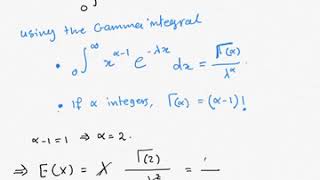 0
using the Gamma integral
• ₀∫^∞ x^(α-1) e^(-λx) dx = Γ(α) / λ^α
• If α integers, Γ(α) = (α-1)!
α-1=1 ⇒ α=2.
⇒ E(X) = λ Γ(2) / λ² =